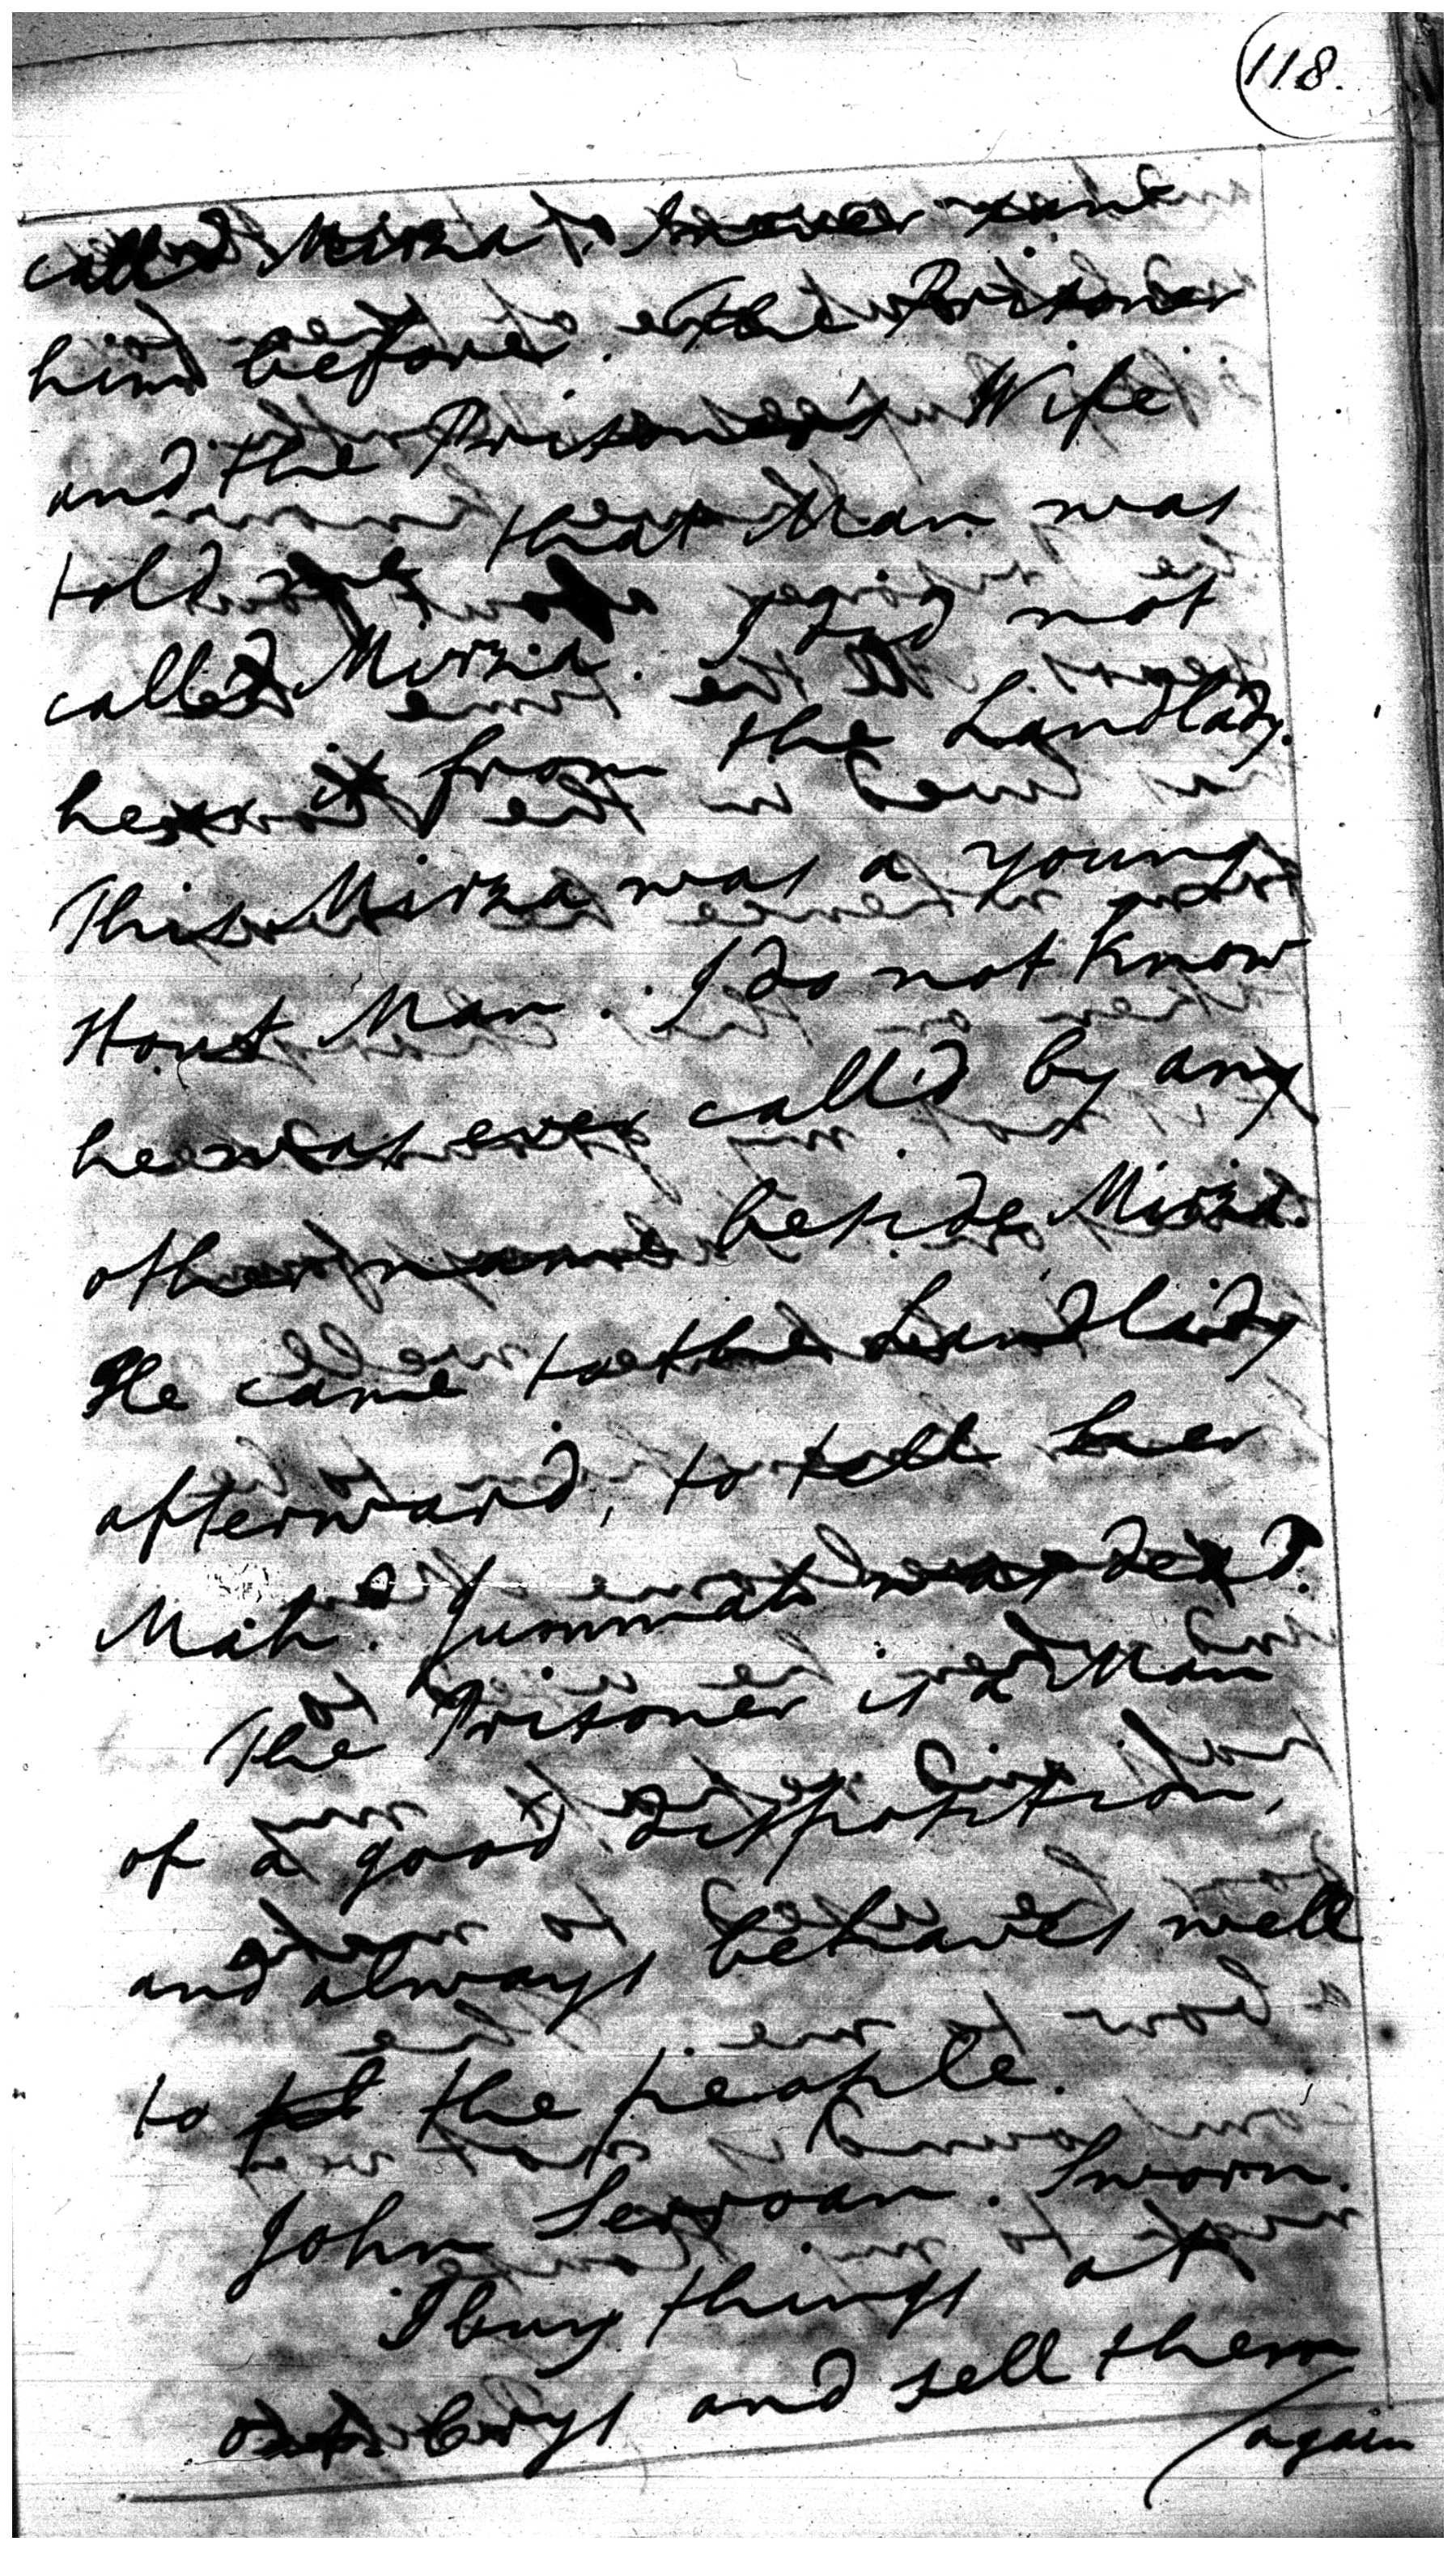 118.
call'd Mirza. I never saw
him before. The Prisoner
and the Prisoner's Wife
told me that Man was
called Mirza. I did not
hear it from the Landlady.
This Mirza was a young
stout Man. I do not know
he was ever call'd by any
other name beside Mirza.
He came to the Landlady
afterward, to tell her
Mah. Jummal was dead.
The Prisoner is a Man
of a good disposition,
and always behaves well
to the people.
John Serroan. Sworn.
I buy things at
and sell them
again